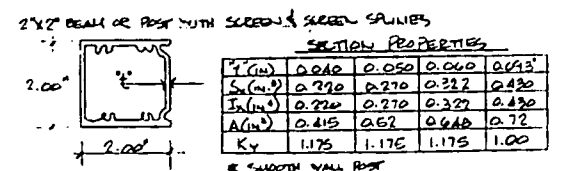 2"x2" BEAM OR POST WITH SCREEN & SCREEN SPLINES
SECTION PROPERTIES
"t"(IN) 0.040 0.050 0.060 0.093*
2.00"
Sx(IN.³) 0.220 0.270 0.322 0.430
"t"
Ix(IN⁴) 0.220 0.270 0.322 0.430
A(IN²) 0.415 0.52 0.648 0.72
2.00"
Ky 1.175 1.175 1.175 1.00
* SMOOTH WALL POST